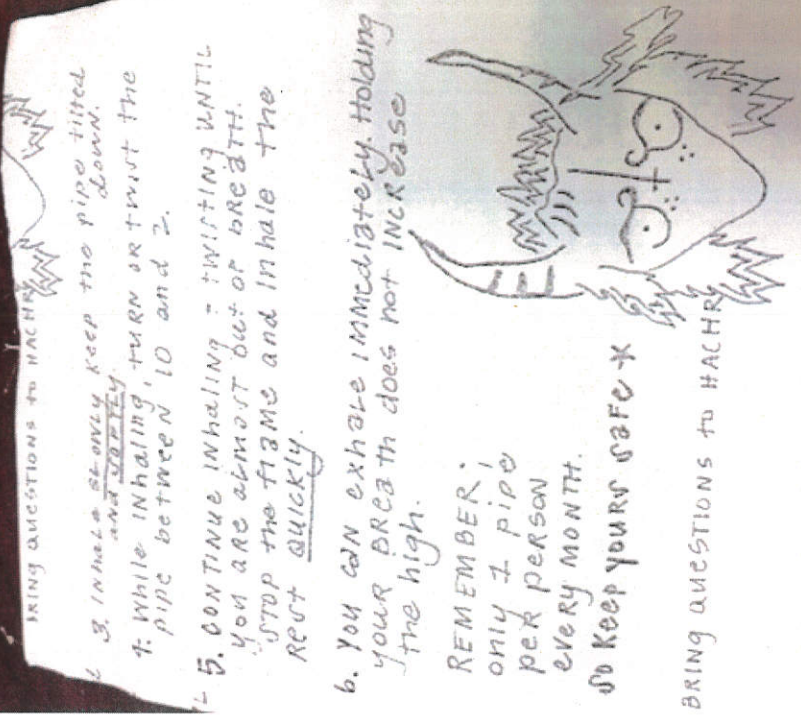 BRING QUESTIONS to HACHR
3. INHALE SLOWLY KEEP the pipe tilted
AND SOFTLY. down.
4. While INhaling, tURN OR twist the
pipe between 10 and 2.
5. CONTINUE INhaling - TWISTING UNTIL
You are almost out of breath.
STOP the flame and Inhale the
Rest QUICKLY.
6. You can exhale immediately. Holding
YOUR BREATH does not INCREASE
the high.
REMEMBER:
only 1 pipe
per person
every MONTH.
So Keep YOURS Safe *
BRING QUESTIONS to HACHR